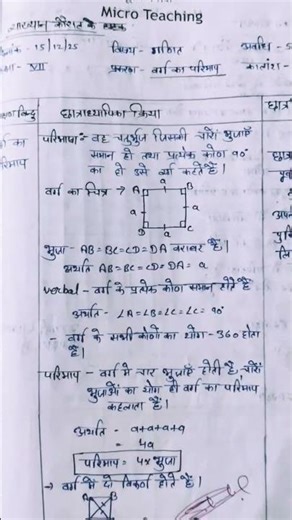 Micro Teaching
व्याख्यान कौशल के
दिनांक - 15/12/25 विषय - गणित अवधि - 5
कक्षा - VII प्रकरण - वर्ग का परिमाप कालांश -
छात्राध्यापिका क्रिया छात्र
वर्ग का
परिमाप
परिभाषा - वह चतुर्भुज जिसकी चारों भुजाएँ
समान हो तथा प्रत्येक कोण 90°
का हो उसे वर्ग कहते है।
वर्ग का चित्र → A B
a
a a
D a C
भुजा - AB=BC=CD=DA बराबर है।
अर्थात AB=BC=CD=DA= a
verbal - वर्ग के प्रत्येक कोण समान होते है
अर्थात - ∠A=∠B=∠C=∠C= 90°
- वर्ग के सभी कोणों का योग - 360 होता
है।
परिमाप - वर्ग में चार भुजाएँ होती है, चारों
भुजाओं का योग ही वर्ग का परिमाप
कहलाता है।
अर्थात - a+a+a+a
= 4a
परिमाप = 4x भुजा
→ वर्ग में दो विकर्ण होते है।
A B